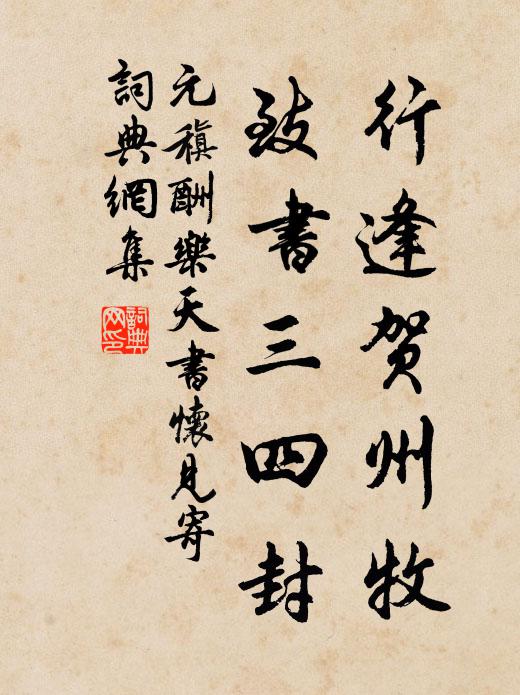 行逢賀州牧
致書三四封
元稹酬樂天書懷見寄
詞典網集
詞典
网印